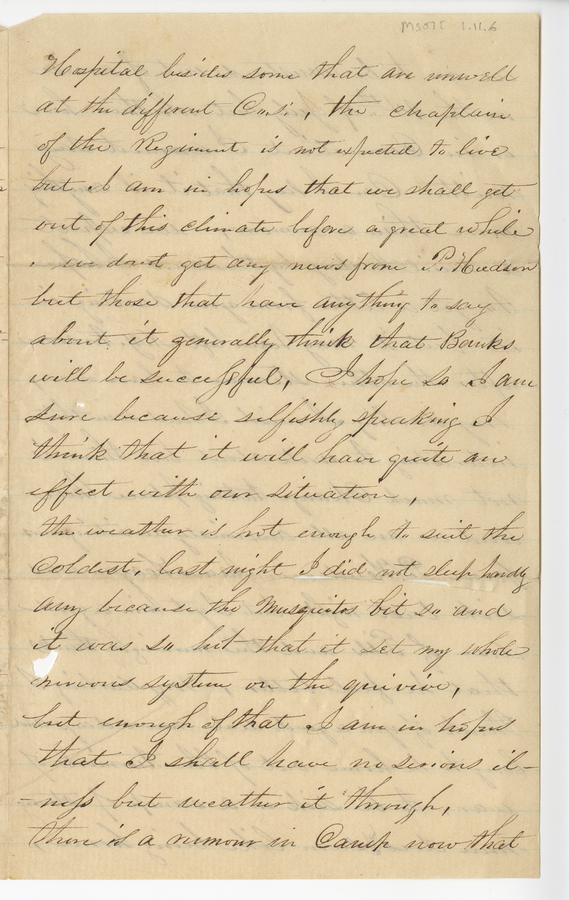 MS075 1.11.6
Hospital besides some that are unwell
at the different Co,s, , the chaplain
of the Regiment is not expected to live
but I am in hopes that we shall get
out of this climate before a great while
. we dont get any news from P. Hudson
but those that have anything to say
about it generally think that Banks
will be successful, I hope so I am
sure because selfishly speaking I
think that it will have quite an
effect with our situation,
the weather is hot enough to suit the
Coldest, last night I did not sleep hardly
any because the Musquitos bit so and
it was so hot that it set my whole
nervous system on the quivive,
but enough of that I am in hopes
that I shall have no serious il-
-ness but weather it through,
there is a rumour in Camp now that